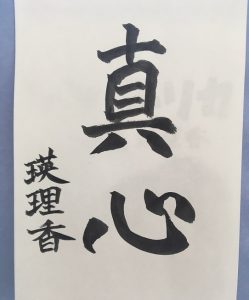 真心
瑛理香